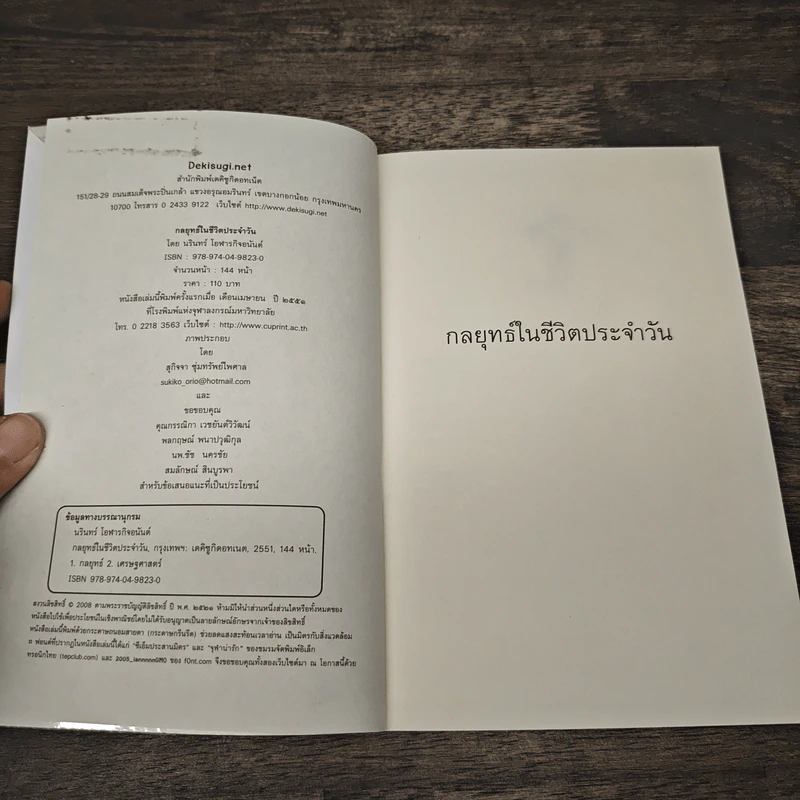 Dekisugi.net
สำนักพิมพ์เดคิซูกิดอทเน็ต
151/28-29 ถนนสมเด็จพระปิ่นเกล้า แขวงอรุณอมรินทร์ เขตบางกอกน้อย กรุงเทพมหานคร
10700 โทรสาร 0 2433 9122 เว็บไซต์ http://www.dekisugi.net
กลยุทธ์ในชีวิตประจำวัน
โดย นรินทร์ โอฬารกิจอนันต์
ISBN : 978-974-04-9823-0
จำนวนหน้า : 144 หน้า
ราคา : 110 บาท
หนังสือเล่มนี้พิมพ์ครั้งแรกเมื่อ เดือนเมษายน ปี ๒๕๕๑
ที่โรงพิมพ์แห่งจุฬาลงกรณ์มหาวิทยาลัย
โทร. 0 2218 3563 เว็บไซต์ : http://www.cuprint.ac.th
ภาพประกอบ
โดย
สุกิจจา ชุ่มทรัพย์ไพศาล
sukiko_orio@hotmail.com
และ
ขอขอบคุณ
คุณกรรณิกา เวชยันต์วิวัฒน์
พลกฤษณ์ พนาปวุฒิกุล
นพ.ชัช นครชัย
สมลักษณ์ สินบูรพา
สำหรับข้อเสนอแนะที่เป็นประโยชน์
ข้อมูลทางบรรณานุกรม
นรินทร์ โอฬารกิจอนันต์
กลยุทธ์ในชีวิตประจำวัน, กรุงเทพฯ: เดคิซูกิดอทเนต, 2551, 144 หน้า.
1. กลยุทธ์ 2. เศรษฐศาสตร์
ISBN 978-974-04-9823-0
สงวนลิขสิทธิ์ © 2008 ตามพระราชบัญญัติลิขสิทธิ์ ปี พ.ศ. ๒๕๒๑ ห้ามมิให้นำส่วนหนึ่งส่วนใดหรือทั้งหมดของ
หนังสือไปใช้เพื่อประโยชน์ในเชิงพาณิชย์โดยไม่ได้รับอนุญาตเป็นลายลักษณ์อักษรจากเจ้าของลิขสิทธิ์
หนังสือเล่มนี้พิมพ์ด้วยกระดาษถนอมสายตา (กระดาษกรีนรีด) ช่วยลดแสงสะท้อนเวลาอ่าน เป็นมิตรกับสิ่งแวดล้อม
¤ ฟอนต์ที่ปรากฏในหนังสือเล่มนี้ได้แก่ "ซีเอ็มประสานมิตร" และ "จุฬาน่ารัก" ของชมรมจัดพิมพ์อิเล็ก
ทรอนิกไทย (tepclub.com) และ ของ f0nt.com จึงขอขอบคุณทั้งสองเว็บไซต์มา ณ โอกาสนี้ด้วย
กลยุทธ์ในชีวิตประจำวัน